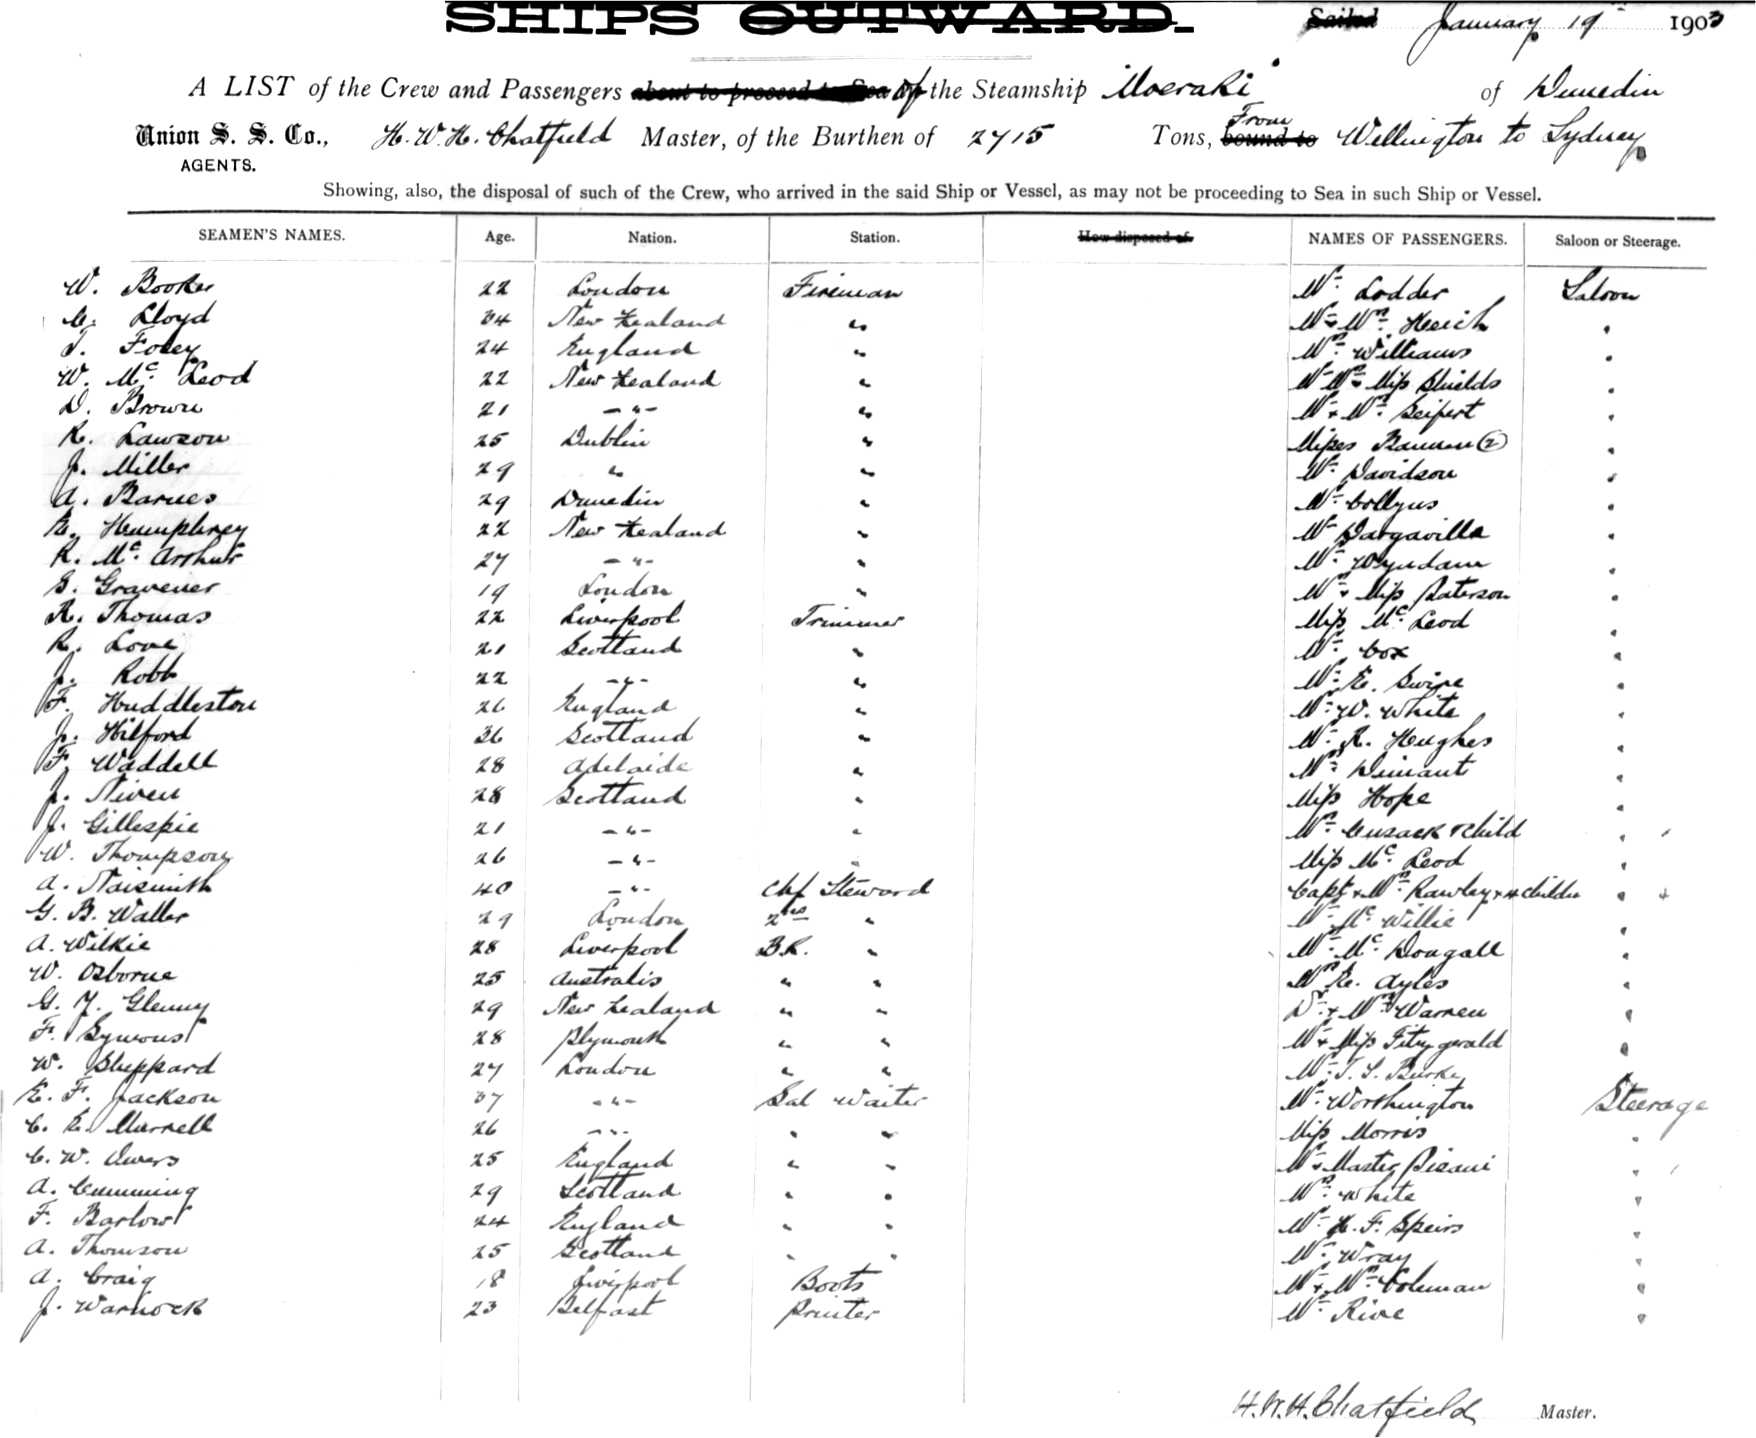 SHIPS OUTWARD.
Sailed January 19th 1903
A LIST of the Crew and Passengers about to proceed to Sea of the Steamship Moeraki of Dunedin
Union S. S. Co., H. W. H. Chatfield Master, of the Burthen of 2715 Tons, bound to From Wellington to Sydney
AGENTS.
Showing, also, the disposal of such of the Crew, who arrived in the said Ship or Vessel, as may not be proceeding to Sea in such Ship or Vessel.
SEAMEN'S NAMES. Age. Nation. Station. How disposed of. NAMES OF PASSENGERS. Saloon or Steerage.
W. Booker 22 London Fireman Mr. Lodder Saloon
C. Lloyd 34 New Zealand " Mr & Mrs. "
T. Foley 24 England " Mrs. Williams "
W. Mc. Leod 22 New Zealand " Mr Mrs & Miss Shields "
D. Brown 21 -"- " Mr & Mrs. Seifert "
R. Lawson 25 Dublin " Misses (2) "
J. Miller 29 " " Mr. Davidson "
A. Barnes 29 Dunedin " Mr. Collyns "
E. Humphrey 22 New Zealand " Mr Dargaville "
R. Mc. Arthur 27 -"- " Mr. Wyndam "
S. Gravener 19 London " Mrs & Miss Paterson "
R. Thomas 22 Liverpool Trimmer Miss Mc. Leod "
R. Love 21 Scotland " Mr. Cox "
J. Robb 22 -"- " Mr. E. Swipe "
F. Huddleston 26 England " Mr. W. White "
J. Hilford 36 Scotland " Mr. R. Hughes "
F. Waddell 28 Adelaide " Mr. Dimant "
J. Niven 28 Scotland " Miss Hope "
J. Gillespie 21 -"- " Mrs. Cusack & child "
W. Thompson 26 -"- " Miss Mc. Leod "
A. Naismith 40 -"- Chf Steward Capt & Mrs. Rawley & 4 childn "
G. B. Waller 29 London 2nd " Mr. Mc. Willie "
A. Wilkie 28 Liverpool B.R. " Mr. Mc. Dougall "
W. Osborne 25 Australia " " Mrs E. Ayles "
G. Y. Glenny 29 New Zealand " " Dr. & Mrs Warren "
F. Symons 28 Plymouth " " Mr & Miss Fitzgerald "
W. Sheppard 27 London " " Mr. T. S. Burke
E. F. Jackson 37 -"- Sal Waiter Mr. Worthington Steerage
C. E. Murrell 26 -"- " " Miss Morris "
C. W. Owers 25 England " " Mr & Master Pisani "
A. Cumming 29 Scotland " " Mrs. White "
F. Barlow 24 England " " Mr. H. F. Speirs "
A. Thomson 25 Scotland " " Mr. Wray "
A. Craig 18 Liverpool Boots Mr & Mrs. Coleman "
J. Warnock 23 Belfast Printer Mr. Rive "
H. W. H. Chatfield Master.